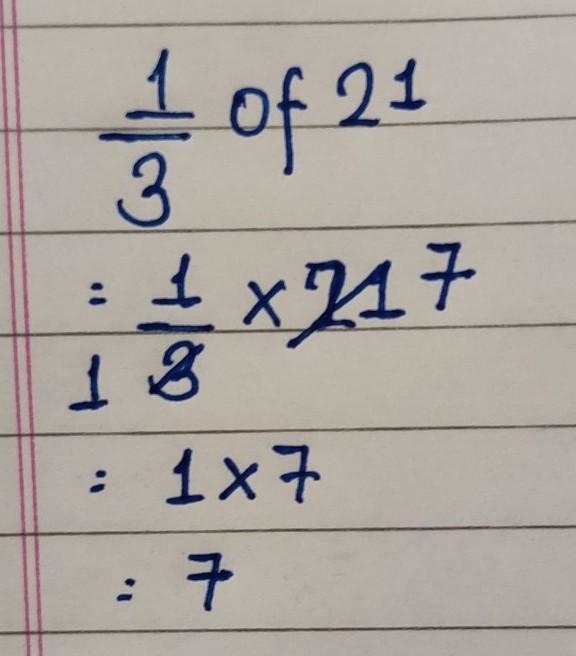 1/3 of 21
= 1/3 × 21 7
1
= 1 × 7
= 7